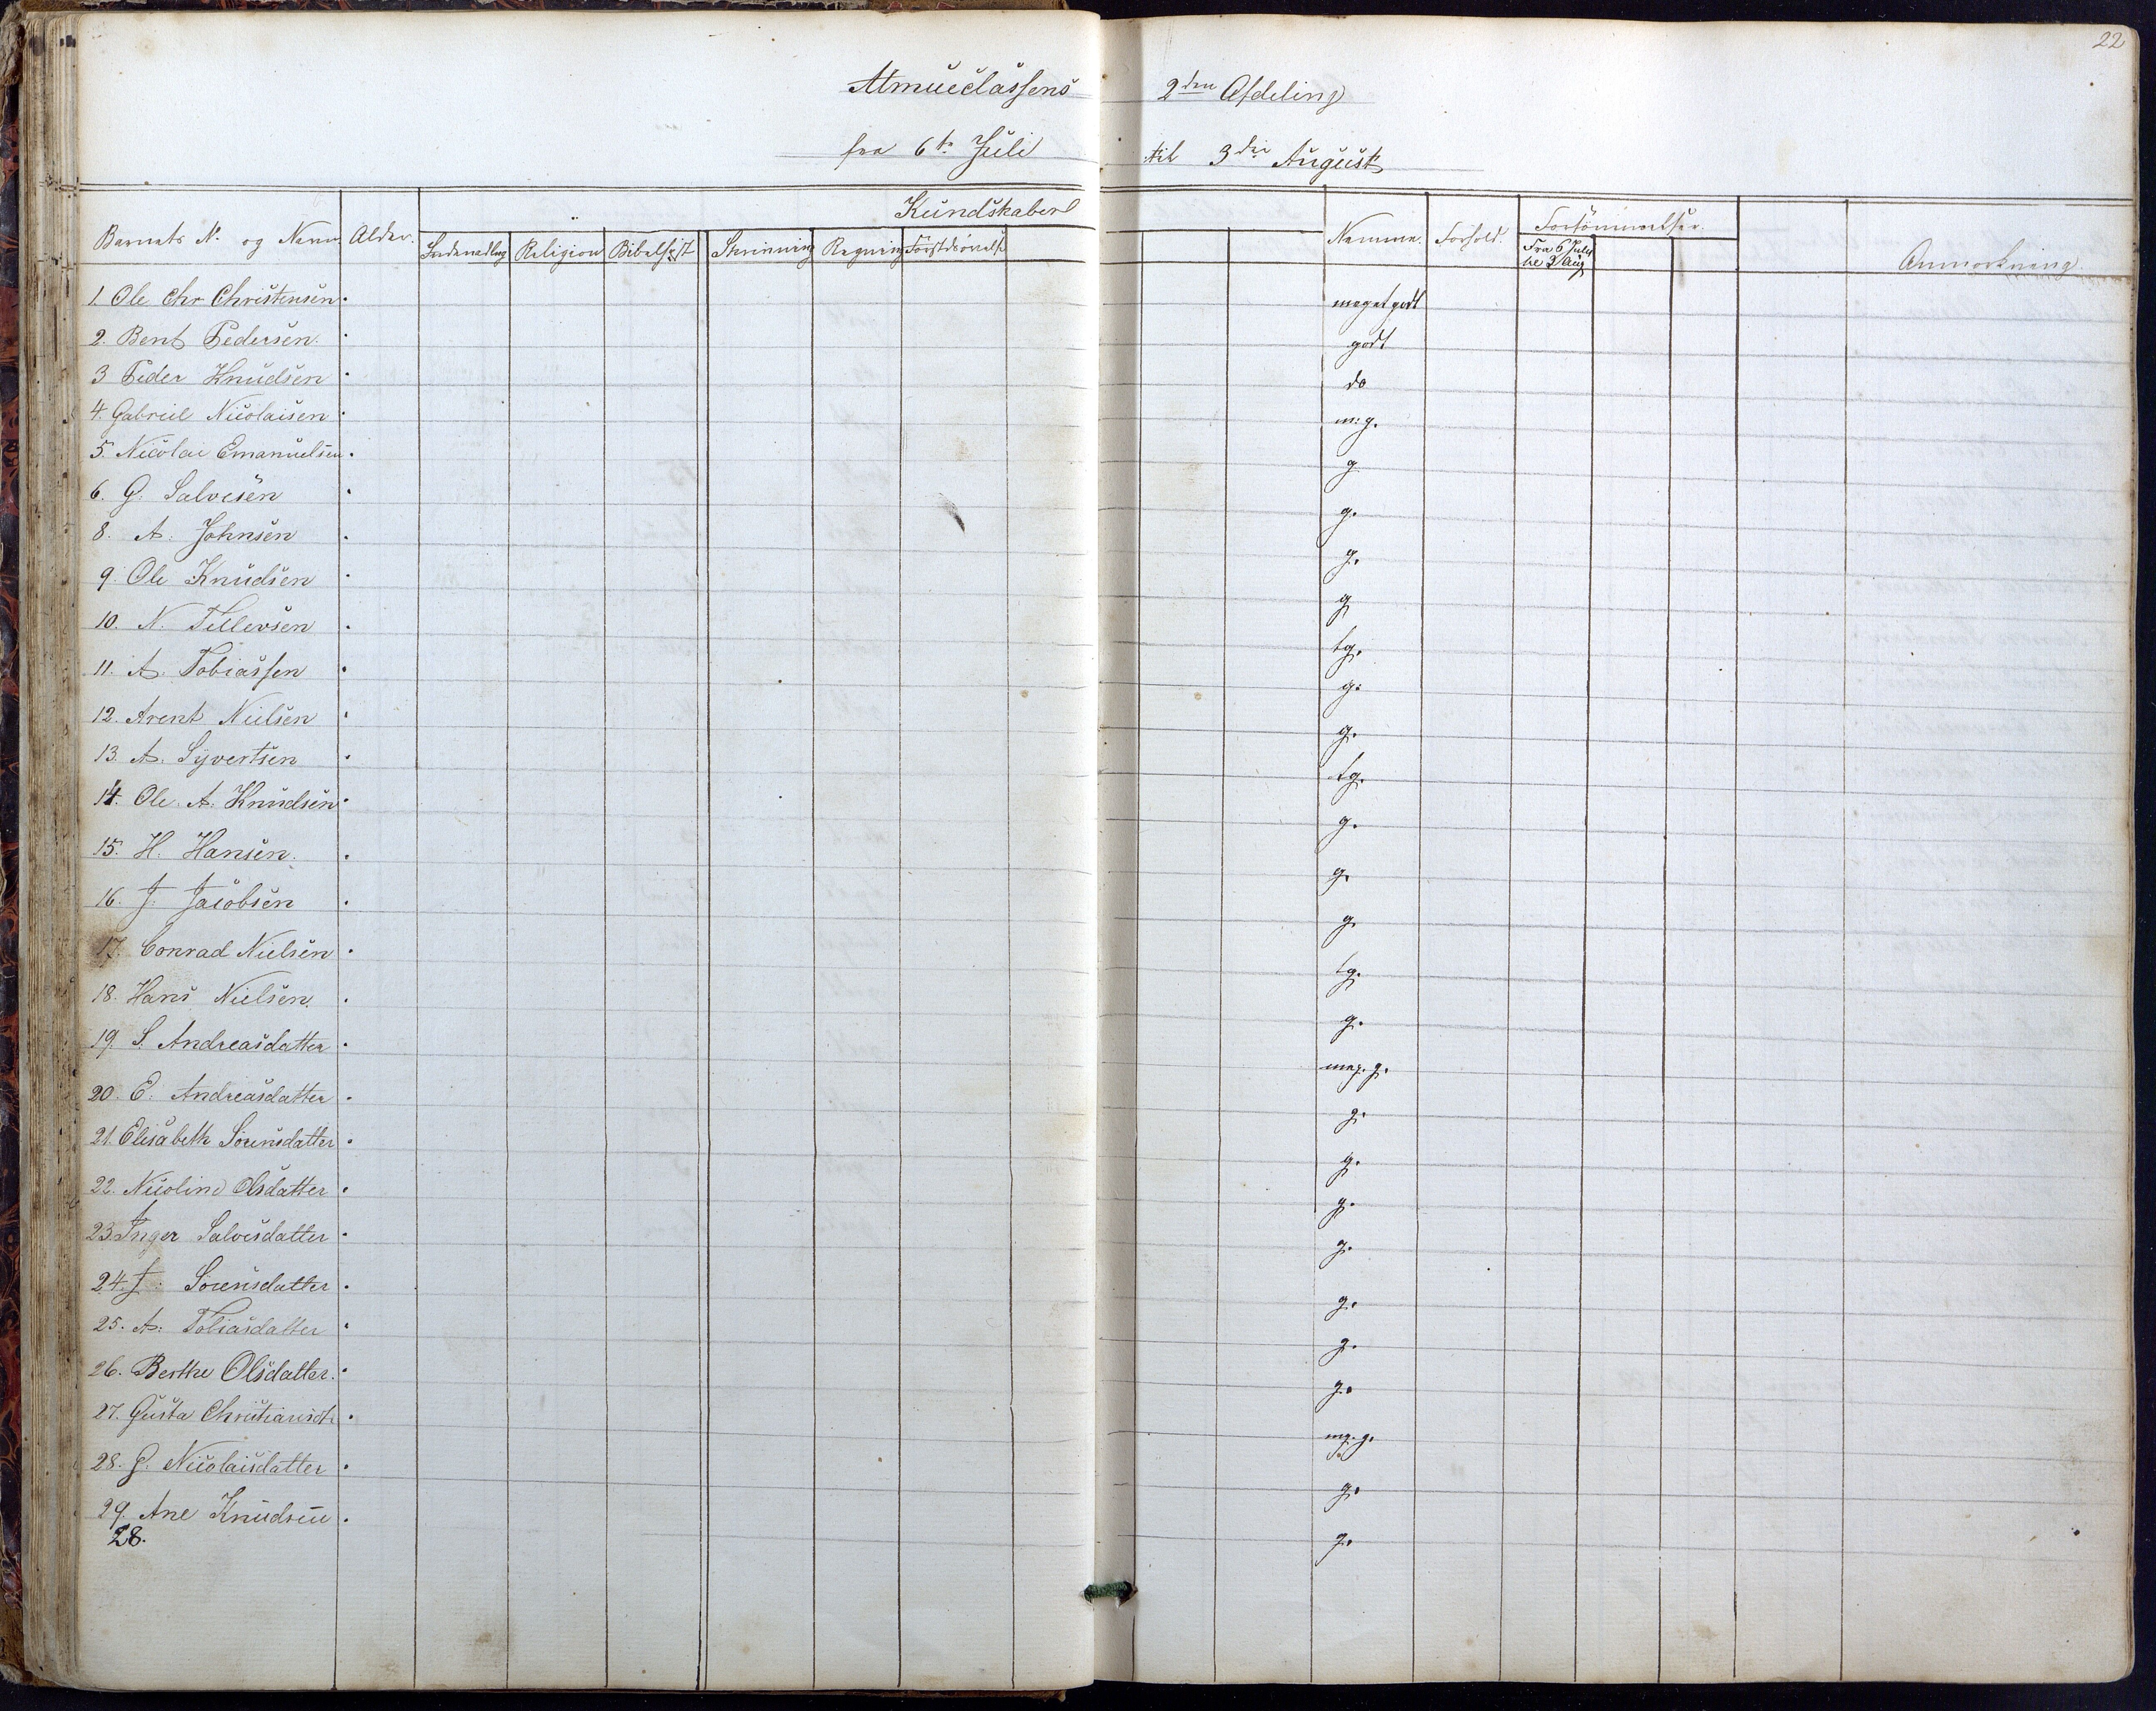 22
Almueclassens 2den Afdeling
fra 6te Juli til 3die August
Kundskaber
Barnets N. og Navn. Alder. Religion Bibelhist Skrivning Regning Nemme. Forhold. Forsømmelser. Anmærkning.
Fra 6 Juli
til 3 Aug
1. Ole Chr Christensen. meget godt
2. Bent Pedersen. godt
3 Peder Knudsen do
4. Gabriel Nicolaisen m: g.
5. Nicolai Emanuelsen. g
6. G. Salvesen g.
8. A. Johnsen g.
9. Ole Knudsen g
10. N. Tellevsen tg.
11. A. Tobiassen g.
12. Arent Nielsen g.
13. A. Syvertsen tg.
14. Ole. A. Knudsen g.
15. H. Hansen. g.
16. J. Jacobsen g.
17. Conrad Nielsen tg.
18. Hans Nielsen. g.
19. S. Andreasdatter meg. g.
20. E. Andreasdatter g.
21. Elisabeth Sørensdatter g.
22. Nicoline Olsdatter g.
23. Inger Salvesdatter g.
24. J. Sørensdatter g.
25. A. Tobiasdatter g.
26. Berthe Olsdatter. g.
27. Gusta Christiansdtr mg. g.
28. G. Nicolaisdatter g.
29. Ane Knudsen g.
28.